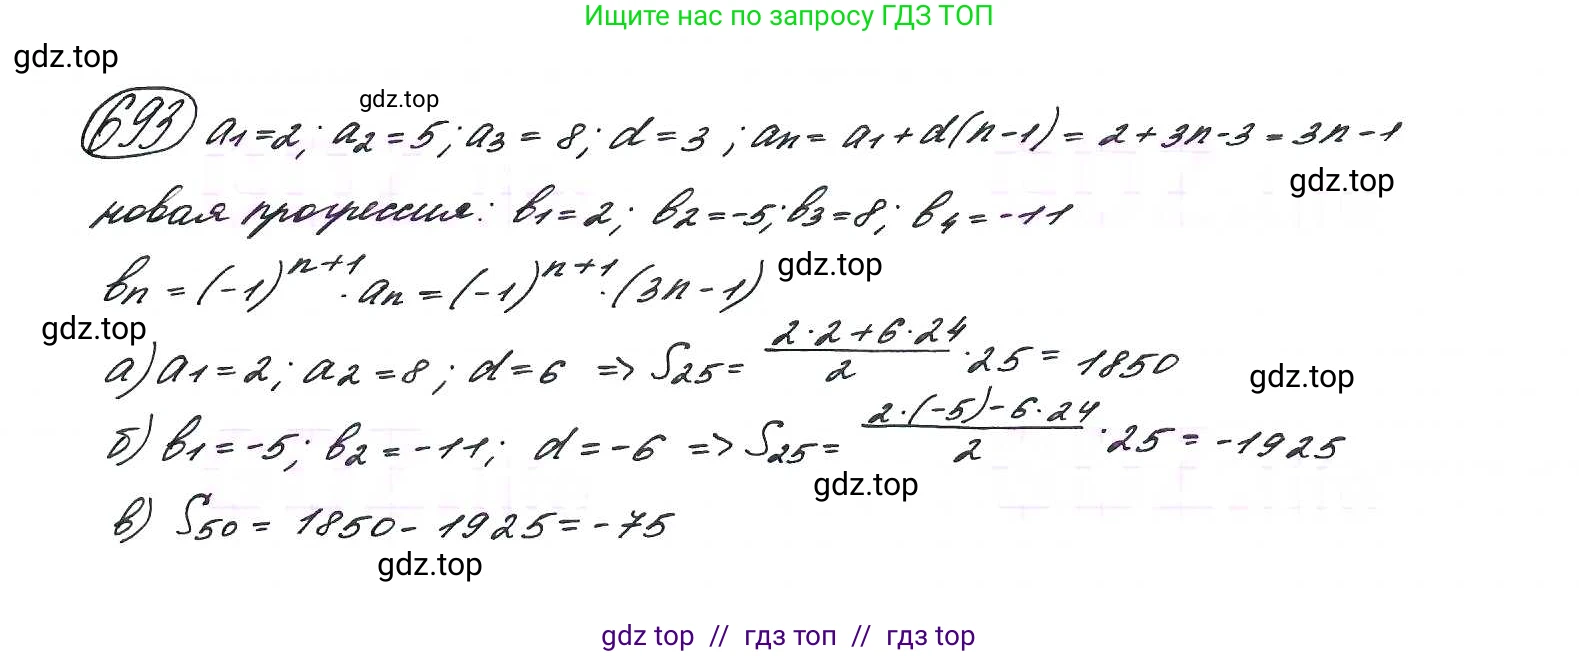 Ищите нас по запросу ГДЗ ТОП
gdz.top
gdz.top
693 a₁=2; a₂=5; a₃=8; d=3; aₙ= a₁+d(n-1)= 2+3n-3=3n-1
gdz.top
новая прогрессия: b₁=2; b₂=-5; b₃=8; b₄=-11
bₙ=(-1)ⁿ⁺¹·aₙ=(-1)ⁿ⁺¹·(3n-1)
gdz.top
gdz.top
а) a₁=2; a₂=8; d=6 => S₂₅= (2·2+6·24)/2 ·25= 1850
gdz.top
б) b₁=-5; b₂=-11; d=-6 => S₂₅= (2·(-5)-6·24)/2 ·25=-1925
gdz.top
в) S₅₀= 1850-1925=-75
gdz.top
gdz top // гдз топ // гдз top